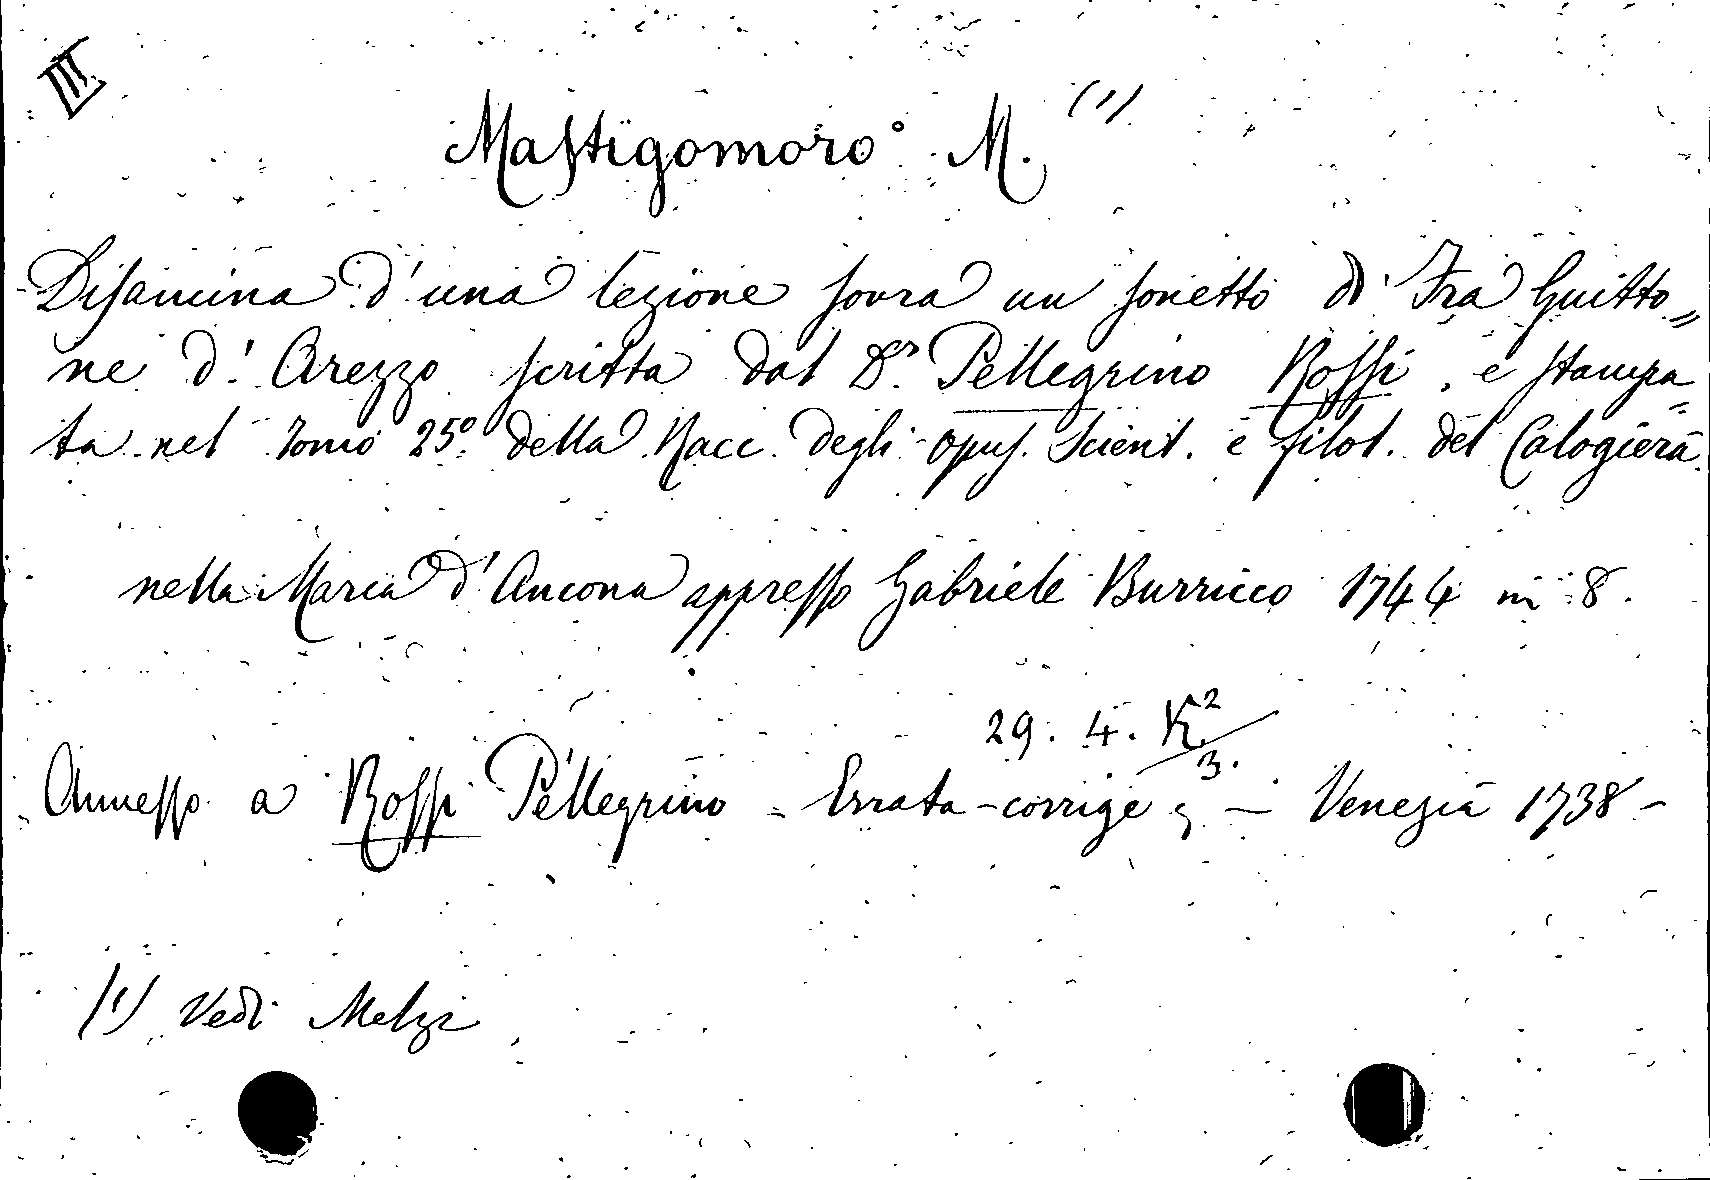 III
Mastigomoro M. (1)
Disamina d'una lezione sovra un sonetto di Fra Guitto=
ne d'Arezzo scritta dal Dr. Pellegrino Rossi, e stampa=
ta nel tomo 25º della Racc. degli opus. scient. e filol. del Calogierà.
nella Marca d'Ancona appresso Gabriele Burricco 1744 in 8.
29. 4. K2/3.
Annesso a Rossi Pellegrino - Errata-corrige; - Venezia 1738 -
(1) Vedi Melzi